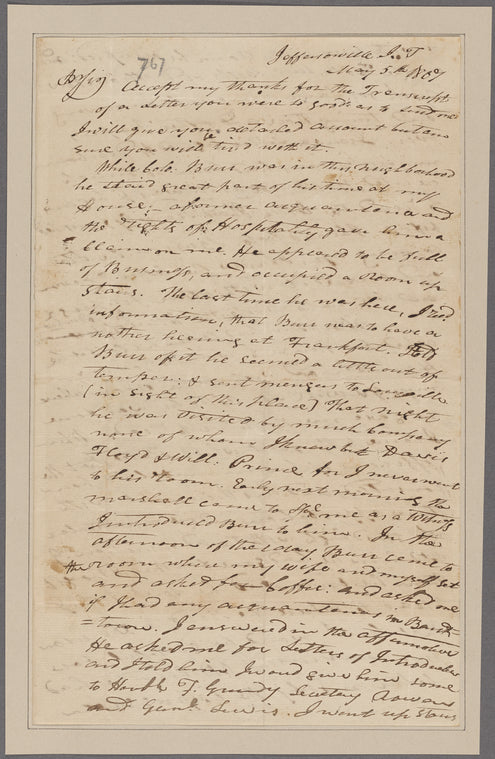 767
Jeffersonville I. T
May 5th 1807
Dr Sir Accept my thanks for the Transcript
of a Letter you were so good as to send me
I will give you a detailed account but am
sure you will tir'd with it.
While Colo: Burr was in this neighborhood
he staied great part of his time at my
House; a former acquaintence and
the rights of Hospitality gave him a
claim on me. He appeared to be full
of Business, and occupied a Room up
stairs. The last time he was here, I red
information, that Burr was to have a
nother hearing at Frankfort. I told
Burr of it he seemed a little out of
temper; & sent mengers to Louisville
(in sight of this place) That night
he was Visited by much Company
none of whom I knew but Davis
Floyd & Will: Prince for I never went
to his Room. Early next morning the
marshall came to me as a Witness
I introduced Burr to him. In the
afternoon of the day Burr came to
the room where my wife and myself set
and asked for Coffee: and asked me
if I had any acquaintences in Bards-
=town. I answered in the affirmative
He asked me for Letters of Introduction
and I told him I woud give him some
to Honble F. Grundy Secretary Rowan
and Genl Lewis. I went up stairs